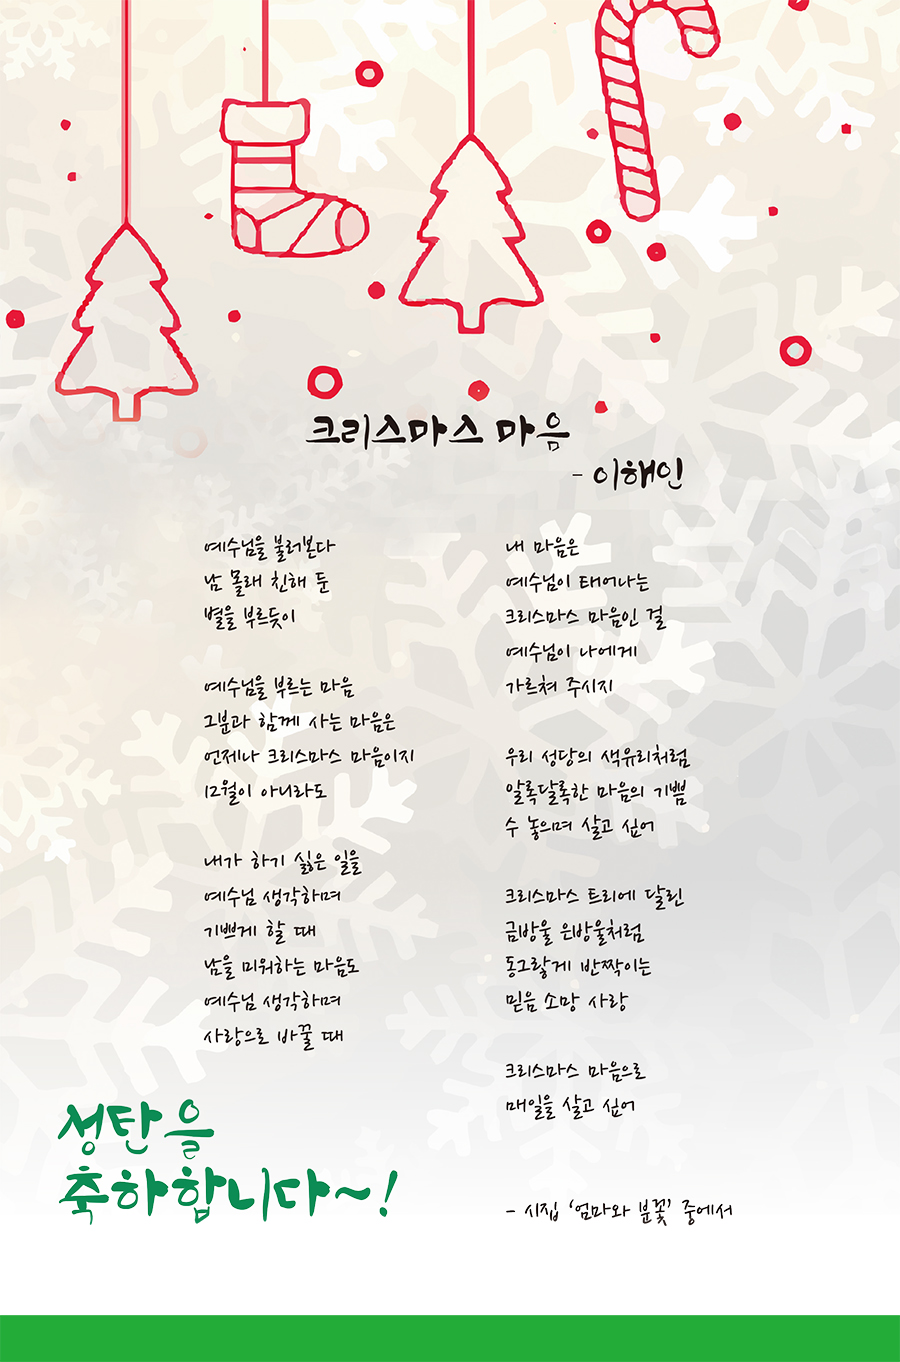 크리스마스 마음
- 이해인
예수님을 불러본다
남 몰래 친해 둔
별을 부르듯이
예수님을 부르는 마음
그분과 함께 사는 마음은
언제나 크리스마스 마음이지
12월이 아니라도
내가 하기 싫은 일을
예수님 생각하며
기쁘게 할 때
남을 미워하는 마음도
예수님 생각하며
사랑으로 바꿀 때
내 마음은
예수님이 태어나는
크리스마스 마음인 걸
예수님이 나에게
가르쳐 주시지
우리 성당의 색유리처럼
알록달록한 마음의 기쁨
수 놓으며 살고 싶어
크리스마스 트리에 달린
금방울 은방울처럼
동그랗게 반짝이는
믿음 소망 사랑
크리스마스 마음으로
매일을 살고 싶어
- 시집 ‘엄마와 분꽃’ 중에서
성탄을
축하합니다~!